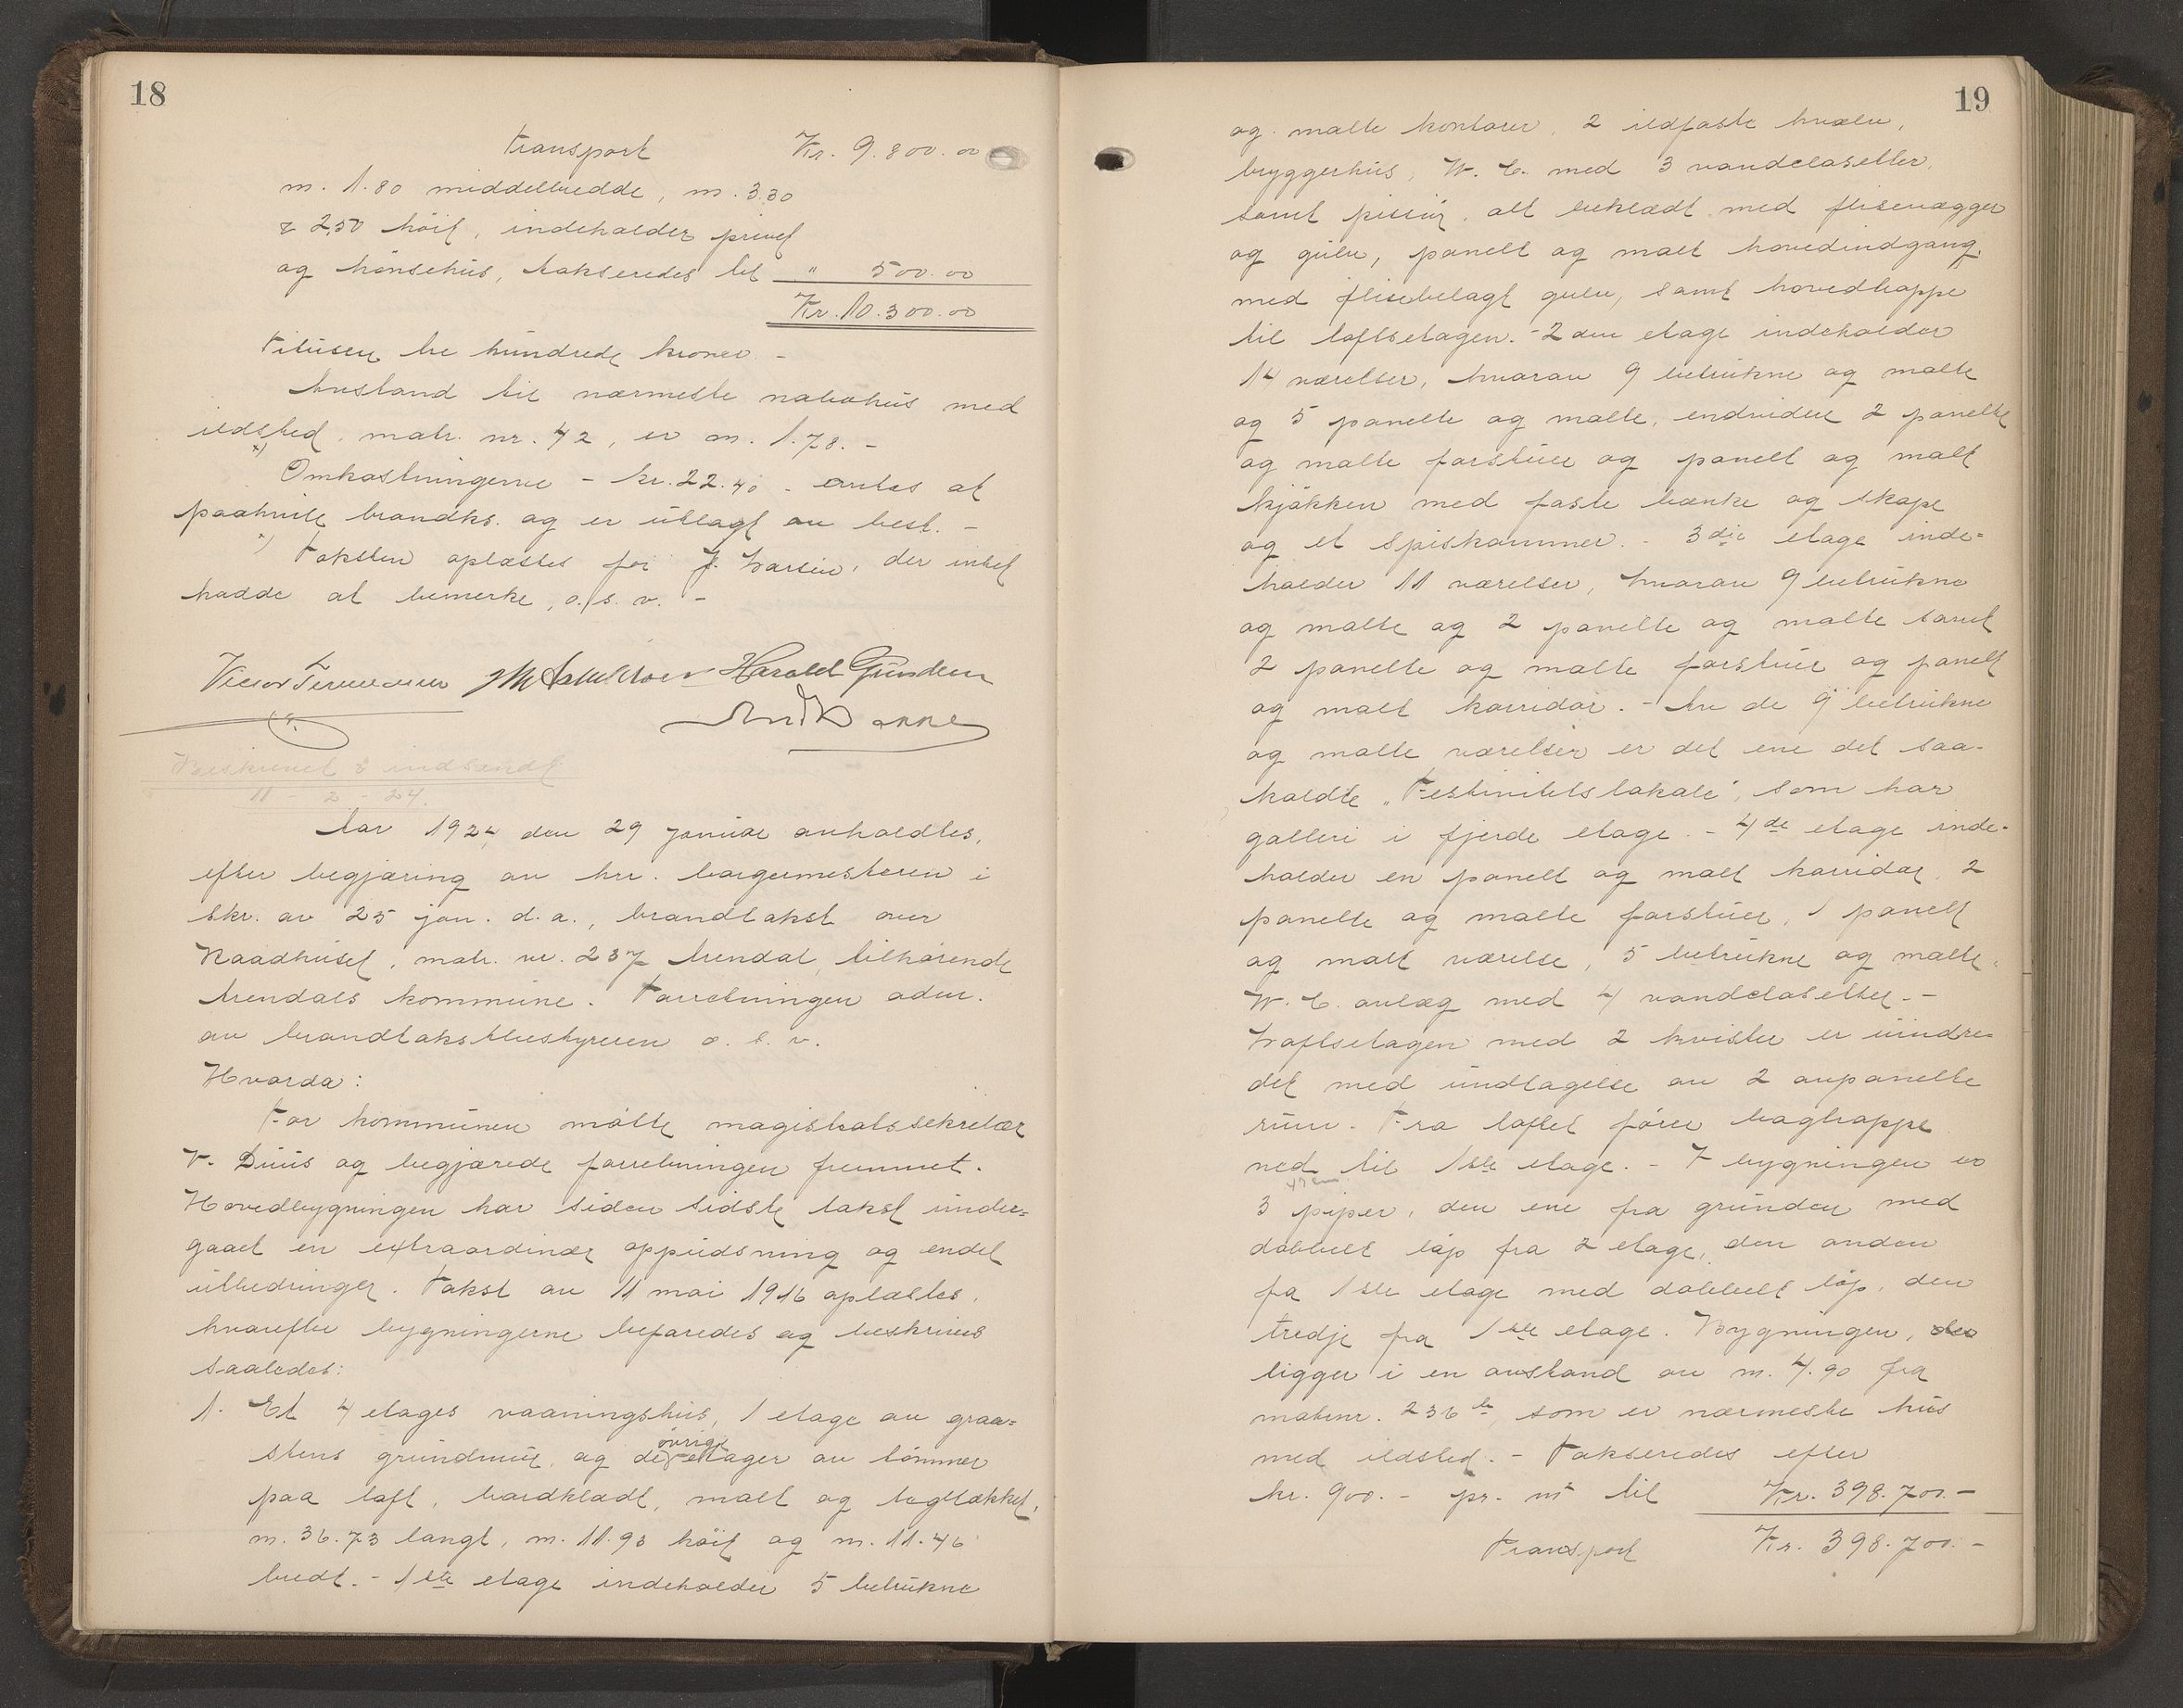 18
Transport Kr. 9.800.00
m. 1.80 middelbredde, m. 3.30
& 2,50 höit, indeholder privet
og hönsehus, takseredes til " 500.00
Kr. 10.300.00
Titusen tre hundrede kroner. -
Avstand til nærmeste nabohus med
ildsted, matr. nr. 42, er m. 1.78. -
x) Omkostningerne - kr. 22.40 - antas at
paahvile brandks. og er utlagt av best. -
x) Taksten oplæstes for J. Larsen, der intet
hadde at bemerke, o. s. v. -
Harald Gundersen
Beskrevet & indsendt
11 - 2 - 24.
Aar 1924 den 29 januar avholdtes,
efter begjæring av hr. borgermesteren i
skr. av 25 jan. d. a., brandtakst over
Raadhuset, matr. nr. 237 Arendal, tilhörende
Arendals kommune. Forretningen adm.
av brandtakstbestyreren o. s. v.
Hvorda:
For kommunen mötte magistratssekretær
V. Duus og begjærede forretningen fremmet.
Hovedbygningen har siden sidste takst under=
gaaet en extraordinær oppudsning og endel
utbedringer. Takst av 11 mai 1916 oplæstes,
hvorefter bygningerne befaredes og beskrives
saaledes:
1. Et 4 etages vaaningshus, 1 etage av graa=
stens grundmur og de övrige etager av tömmer
paa loft, bordklædt, malt og tegltækket,
m. 36.73 langt, m. 11.93 höit og m. 11.46
bredt. - 1ste etage indeholder 5 betrukne
19
og malte kontorer, 2 ildfaste hvælv,
bryggerhus, W. C. med 3 vandclosetter
samt pissoir, alt beklædt med flisevægger
og gulv, panelt og malt hovedindgang
med flisebelagt gulv, samt hovedtrappe
til loftsetagen. - 2den etage indeholder
14 værelser, hvorav 9 betrukne og malte
og 5 panelte og malte, endvidere 2 panelte
og malte forstuer og panelt og malt
kjökken med faste bænke og skape
og et spiskammer. - 3die etage inde=
holder 11 værelser, hvorav 9 betrukne
og malte og 2 panelte og malte samt
2 panelte og malte forstuer og panelt
og malt korridor. - Av de 9 betrukne
og malte værelser er det ene det saa-
kaldte „Festivitetslokale", som har
galleri i fjerde etage. - 4de etage inde-
holder en panelt og malt korridor, 2
panelte og malte forstuer, 1 panelt
og malt værelse, 5 betrukne og malte,
W. C. anlæg med 4 vandclosetter. -
Loftsetagen med 2 kvister er uindre=
det med undtagelse av 2 avpanelte
rum. Fra loftet förer bagtrappe
ned til 1ste etage. - I bygningen er
3 piper, den ene fra grunden med
dobbelt löp fra 2 etage, den anden
fra 1ste etage med dobbelt löp, den
tredje fra 1ste etage. Bygningen,
ligger i en avstand av m. 4.90 fra
matr.nr. 236 b, som er nærmeste hus
med ildsted. - Takseredes efter
kr. 900. - pr. m² til Kr. 398.700.-
Transport Kr. 398.700.-